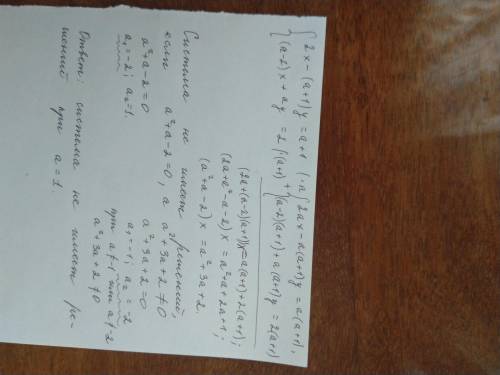 { 2x-(a+1)y = a+1 (·a { 2ax-a(a+1)y = a(a+1),
{ (a-2)x+ay = 2 |·(a+1) + { (a-2)(a+1)+a(a+1)y = 2(a+1)
(2a+(a-2)(a+1))x = a(a+1)+2(a+1);
(2a+a²-a-2)x = a²+a+2a+1;
(a²+a-2)x = a²+3a+2
Система не имеет решений,
если a²+a-2=0, а a²+3a+2≠0
a²+a-2=0 a²+3a+2=0
a₁=-2; a₂=1. a₁=-1; a₂=-2
при a≠-1 или a≠-2
a²+3a+2≠0
Ответ: система не имеет ре-
шений при a=1.